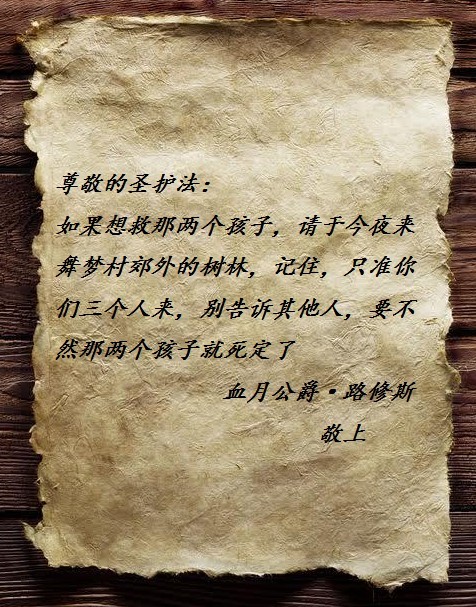 尊敬的圣护法：
如果想救那两个孩子，请于今夜来
舞梦村郊外的树林，记住，只准你
们三个人来，别告诉其他人，要不
然那两个孩子就死定了
血月公爵·路修斯
敬上